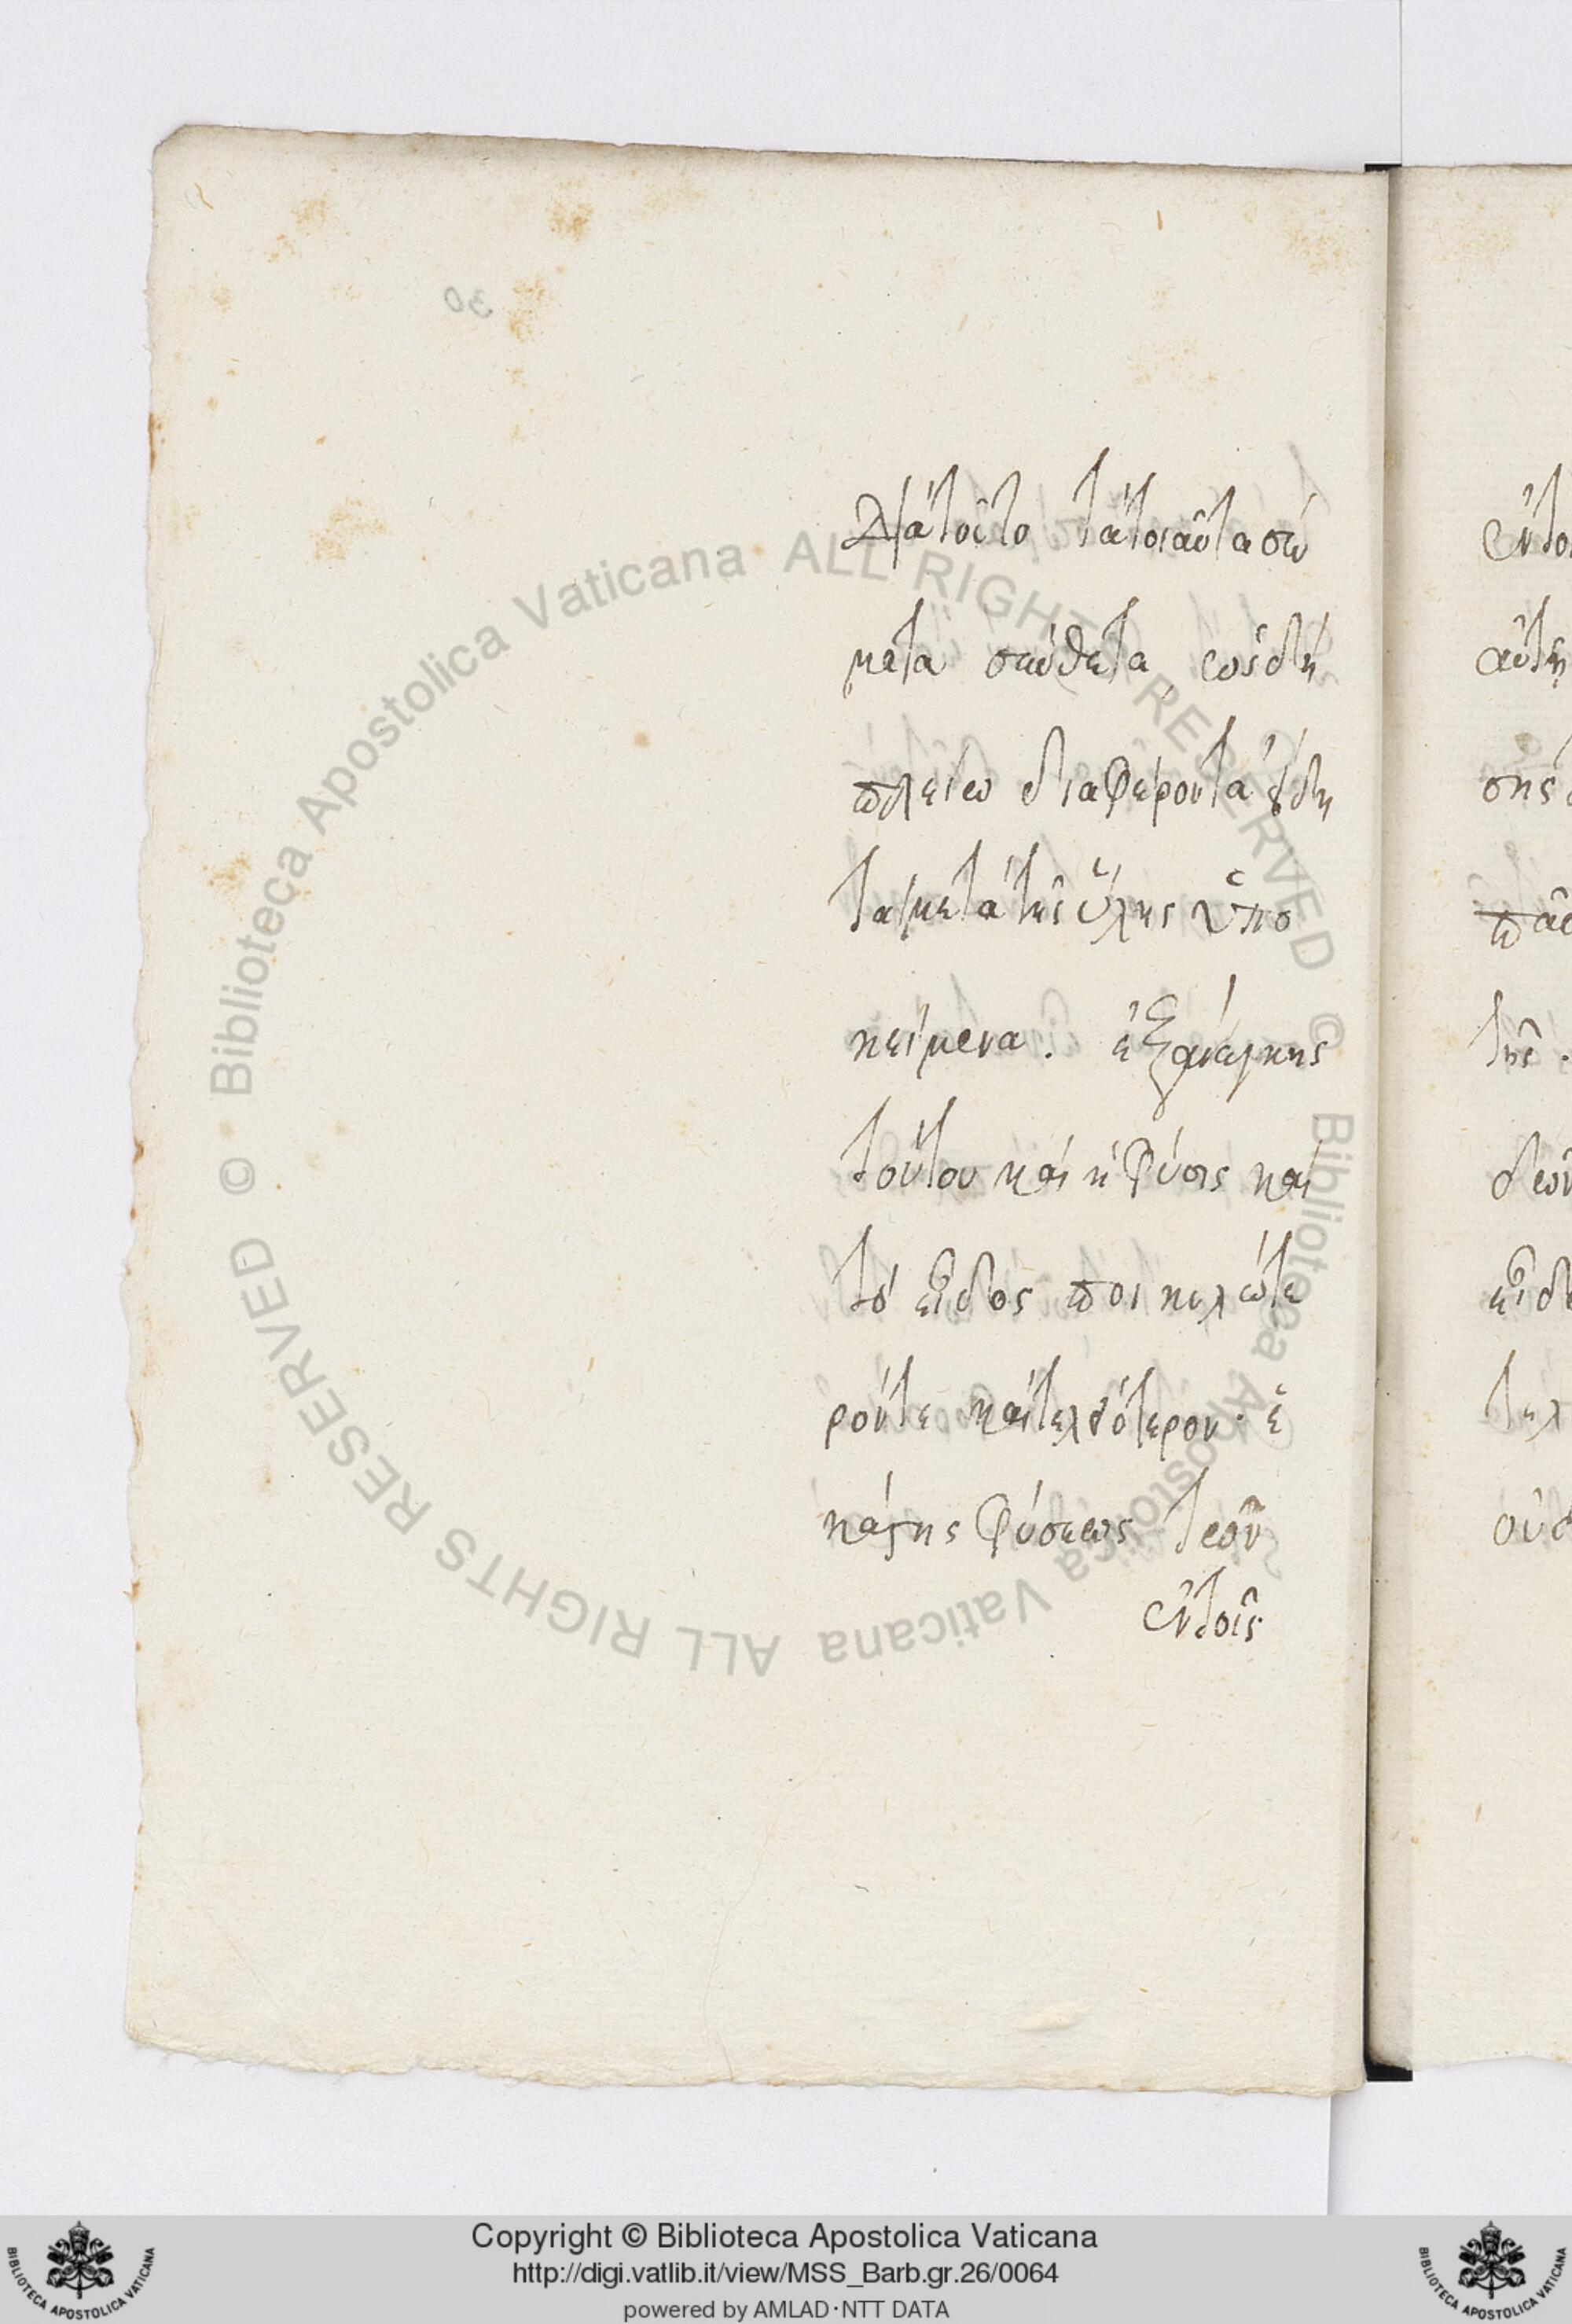 30
Διὰ τοῦτο τὰ τοιαῦτα σώ
ματα σύνθετα, ὡς δὴ
πλείω διαφέροντα ἤδη
τὰ μετὰ τῆς ὕλης ὑπο
κείμενα. ἐξ ἀνάγκης
τούτου καὶ ἡ φύσις καὶ
τὸ εἶδος ποικιλώτε
ρόν τε καὶ τελεώτερον. ἑ
κάστης φύσεως τεον
ἐν τοῖς
© Biblioteca Apostolica Vaticana ALL RIGHTS RESERVED © Biblioteca Apostolica Vaticana ALL RIGHTS RESERVED
Copyright © Biblioteca Apostolica Vaticana
http://digi.vatlib.it/view/MSS_Barb.gr.26/0064
powered by AMLAD·NTT DATA
BIBLIOTECA APOSTOLICA VATICANA
BIBLIOTECA APOSTOLICA VATICANA